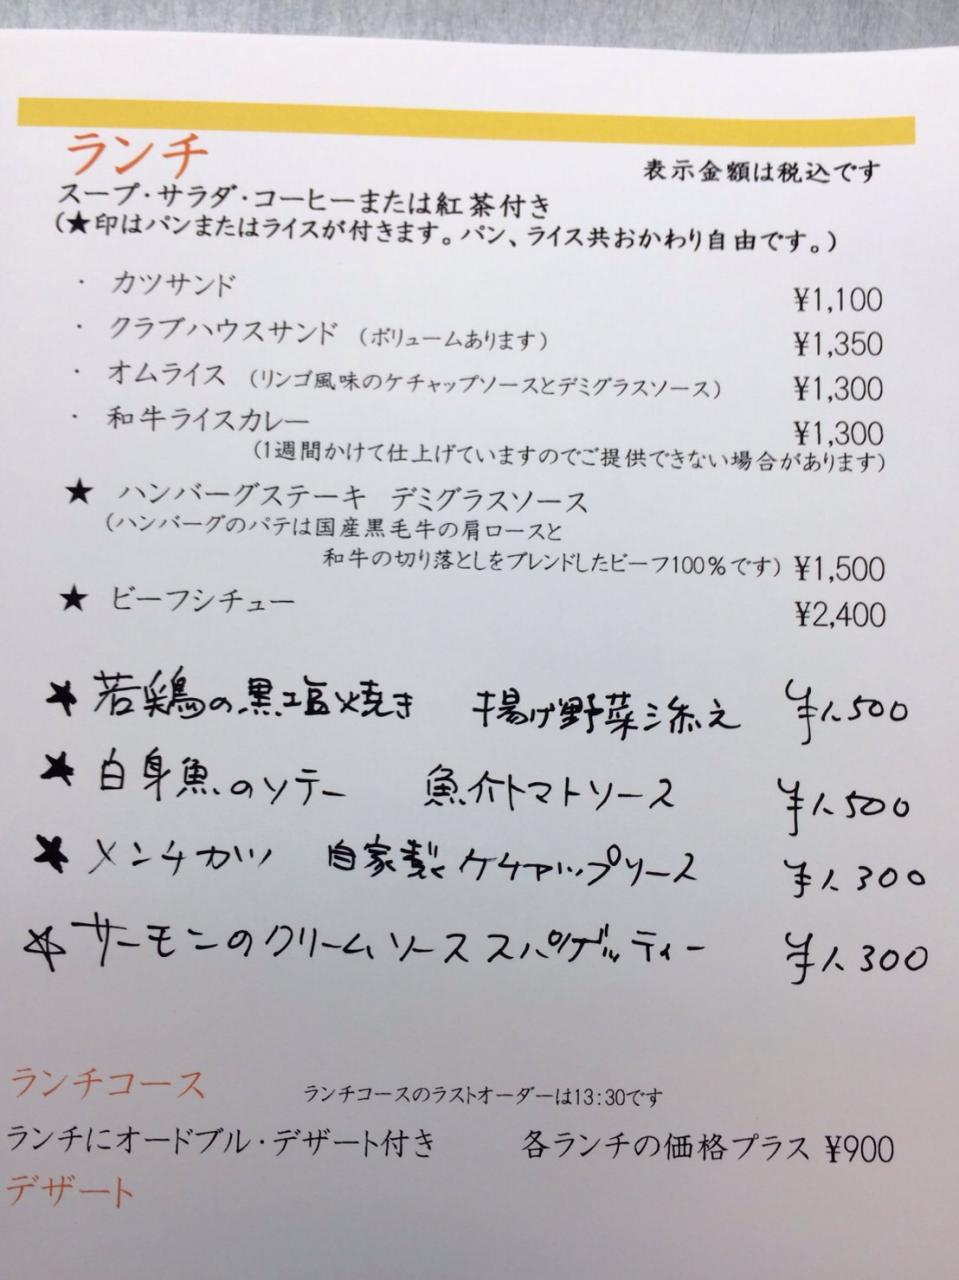 ランチ
表示金額は税込です
スープ・サラダ・コーヒーまたは紅茶付き
(★印はパンまたはライスが付きます。パン、ライス共おかわり自由です。)
・ カツサンド ¥1,100
・ クラブハウスサンド (ボリュームあります) ¥1,350
・ オムライス (リンゴ風味のケチャップソースとデミグラスソース) ¥1,300
・ 和牛ライスカレー ¥1,300
(1週間かけて仕上げていますのでご提供できない場合があります)
★ ハンバーグステーキ デミグラスソース
(ハンバーグのパテは国産黒毛牛の肩ロースと
和牛の切り落としをブレンドしたビーフ100%です) ¥1,500
★ ビーフシチュー ¥2,400
★ 若鶏の黒塩焼き 揚げ野菜添え ¥1.500
★ 白身魚のソテー 魚介トマトソース ¥1.500
★ メンチカツ 自家製ケチャップソース ¥1.300
☆ サーモンのクリームソース スパゲッティー ¥1.300
ランチコース ランチコースのラストオーダーは13:30です
ランチにオードブル・デザート付き 各ランチの価格プラス ¥900
デザート